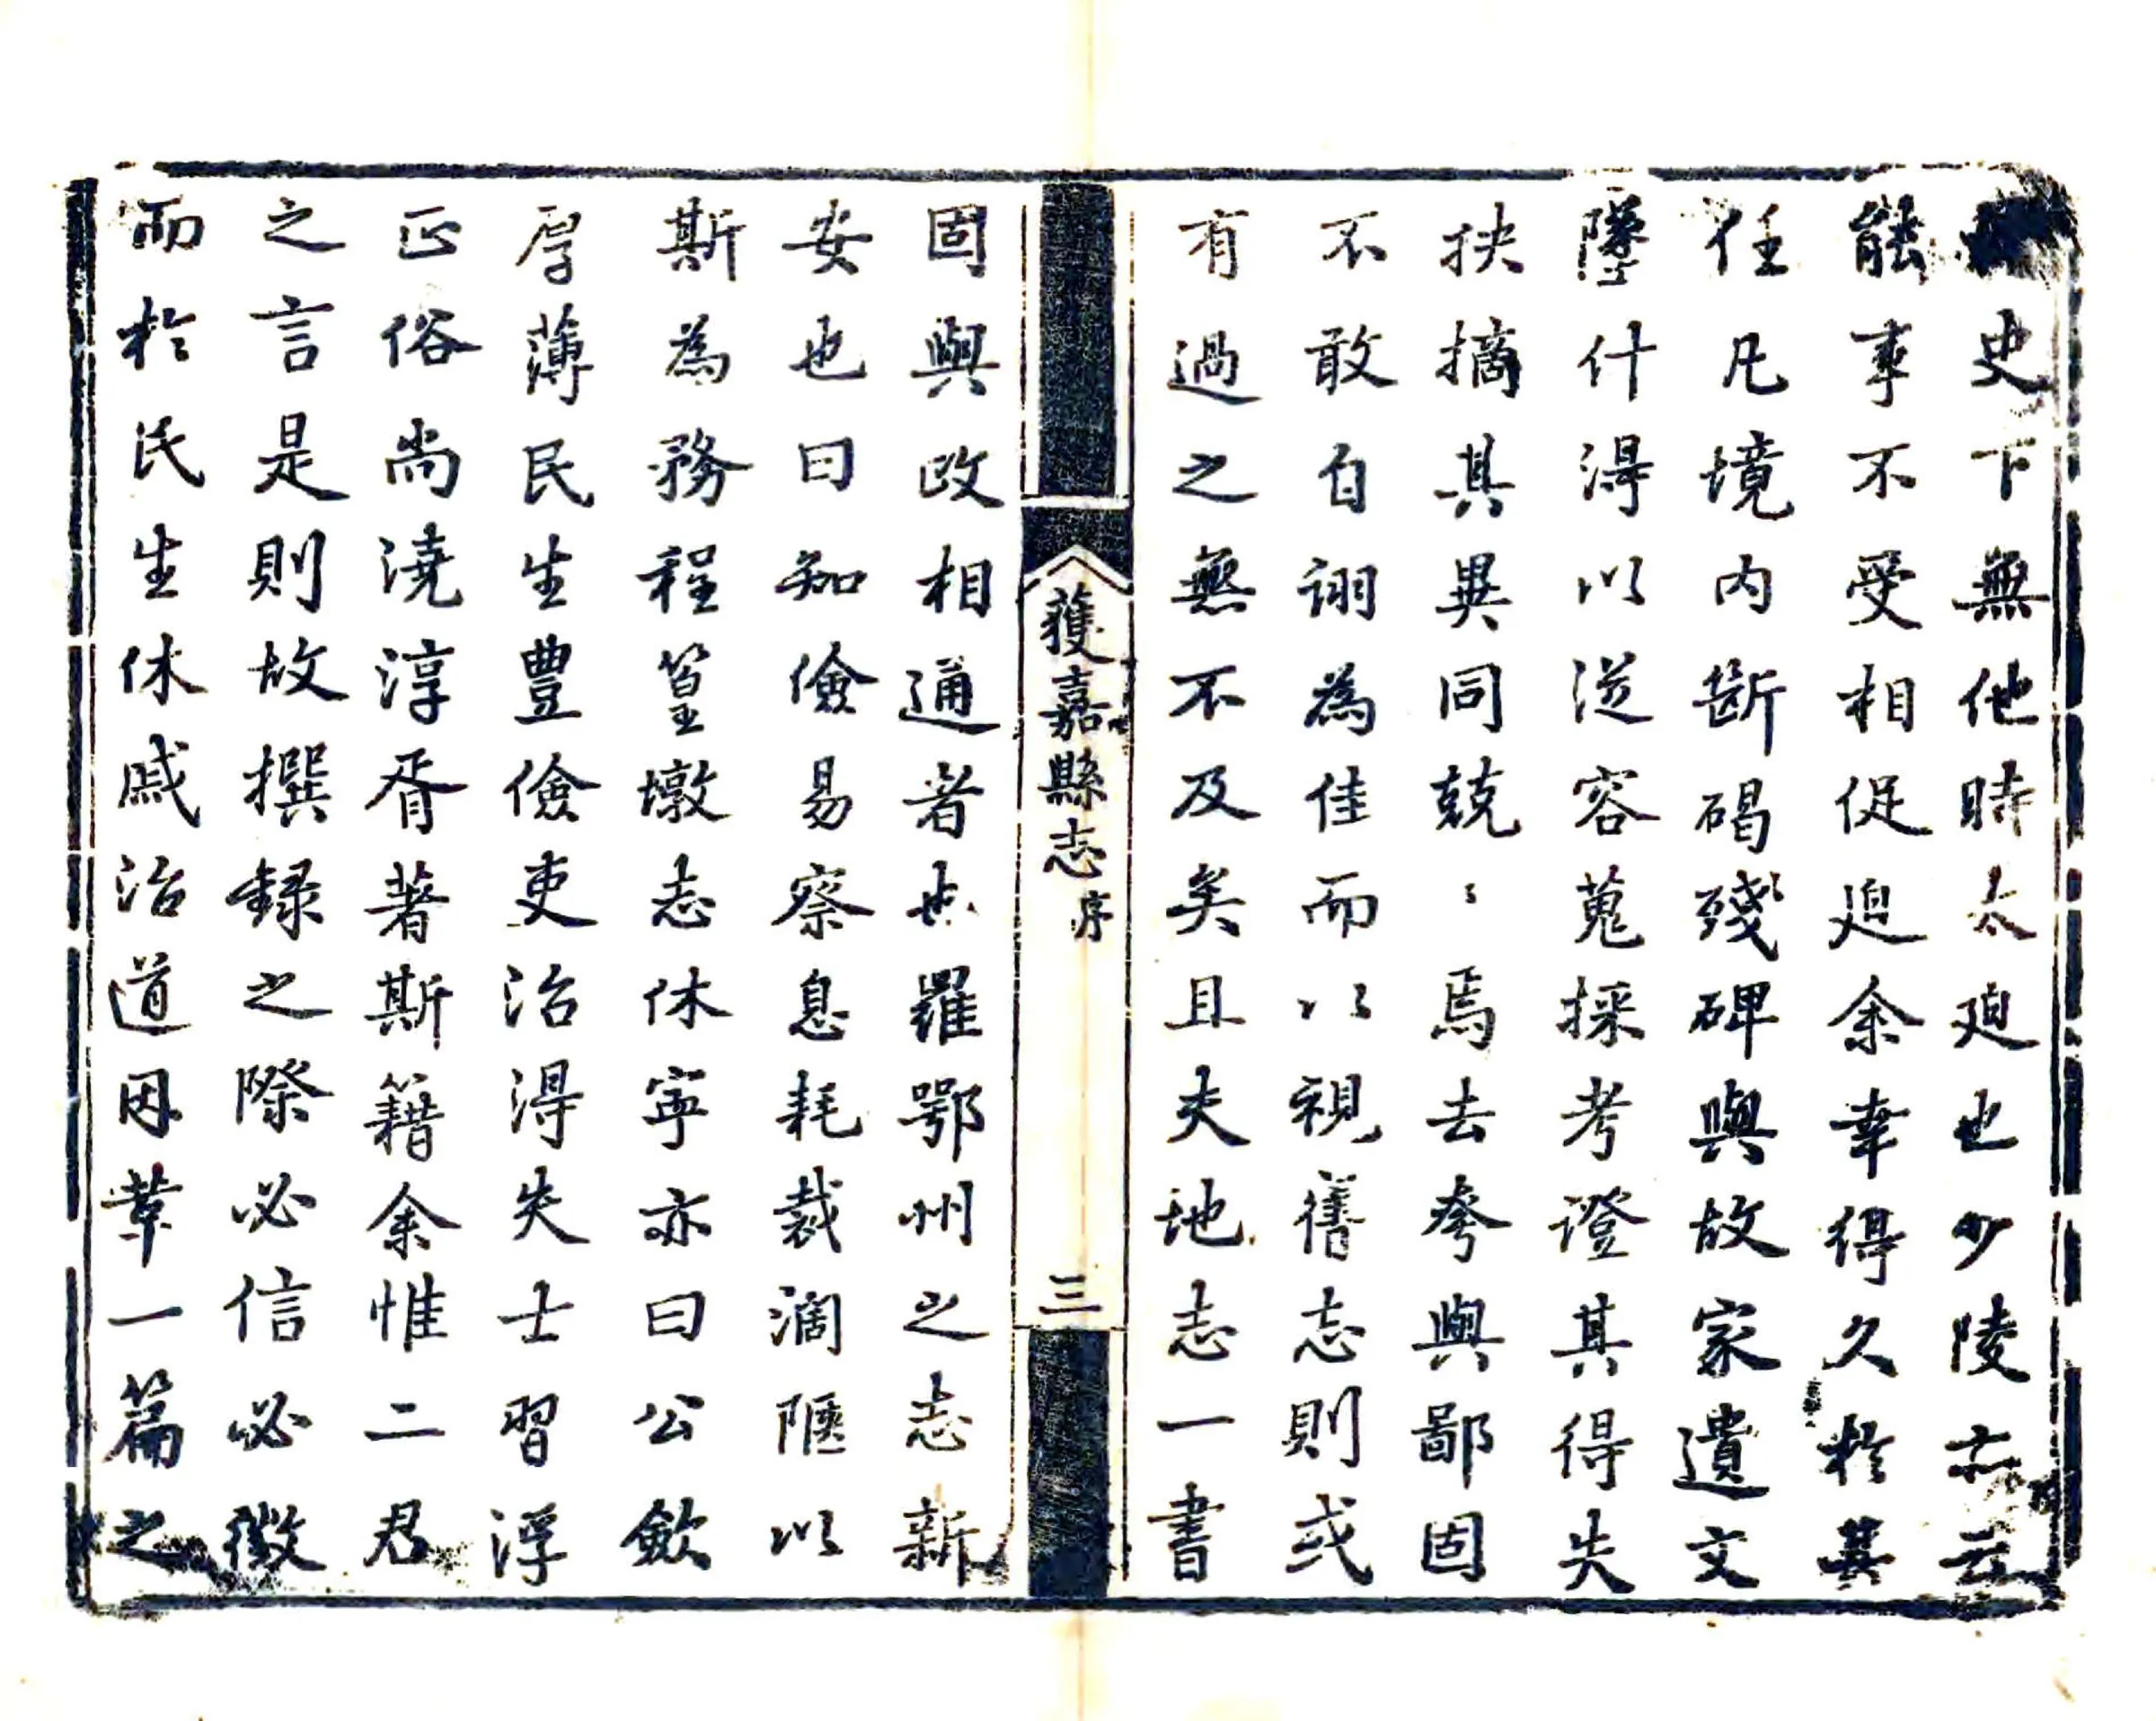 史下無他時太廹也少陵亦云
能事不受相促廹余幸得久於其
任凡境内斷碣殘碑與故家遺文
墜什淂以従容蒐採考證其得失
抉摘其異同兢〻焉去夸與鄙固
不敢自詡為佳而以視舊志則或
有過之無不及矣且夫地志一書
獲嘉縣志 序 三
固與政相通者也羅鄂州之志新
安也曰知儉易察息耗裁濶陿以
斯為務程篁墩志休寧亦曰公斂
厚薄民生豊儉吏治淂失士習浮
正俗尚澆淳胥著斯籍余惟二君
之言是則故撰録之際必信必徴
而於民生休戚治道因革一篇之